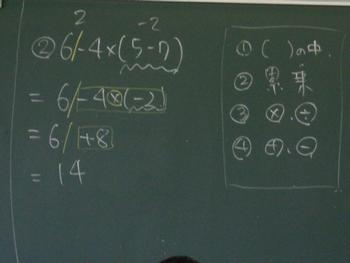 2 -2
② 6/-4×(5-7)
= 6/-4×(-2)
= 6/+8
= 14
① ( )の中
② 累乗
③ ×、÷
④ +、-